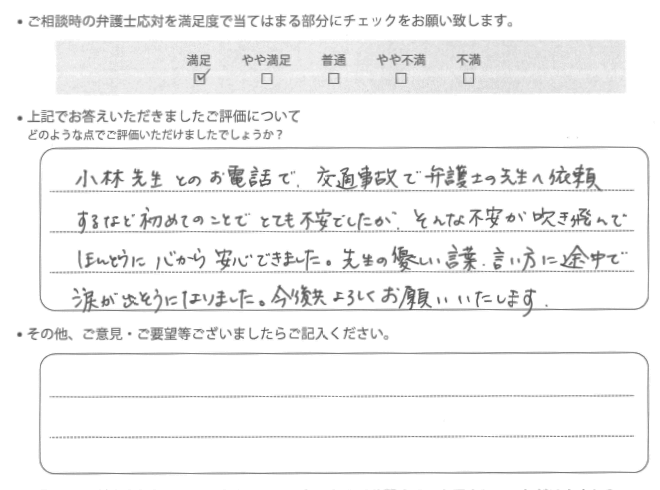 • ご相談時の弁護士応対を満足度で当てはまる部分にチェックをお願い致します。
満足 やや満足 普通 やや不満 不満
☑ ☐ ☐ ☐ ☐
• 上記でお答えいただきましたご評価について
どのような点でご評価いただけましたでしょうか？
小林先生とのお電話で、交通事故で弁護士の先生へ依頼
するなど初めてのことでとても不安でしたが、そんな不安が吹き飛んで
ほんとうに心から安心できました。先生の優しい言葉、言い方に途中で
涙が出そうになりました。今後共よろしくお願いいたします.
• その他、ご意見・ご要望等ございましたらご記入ください。